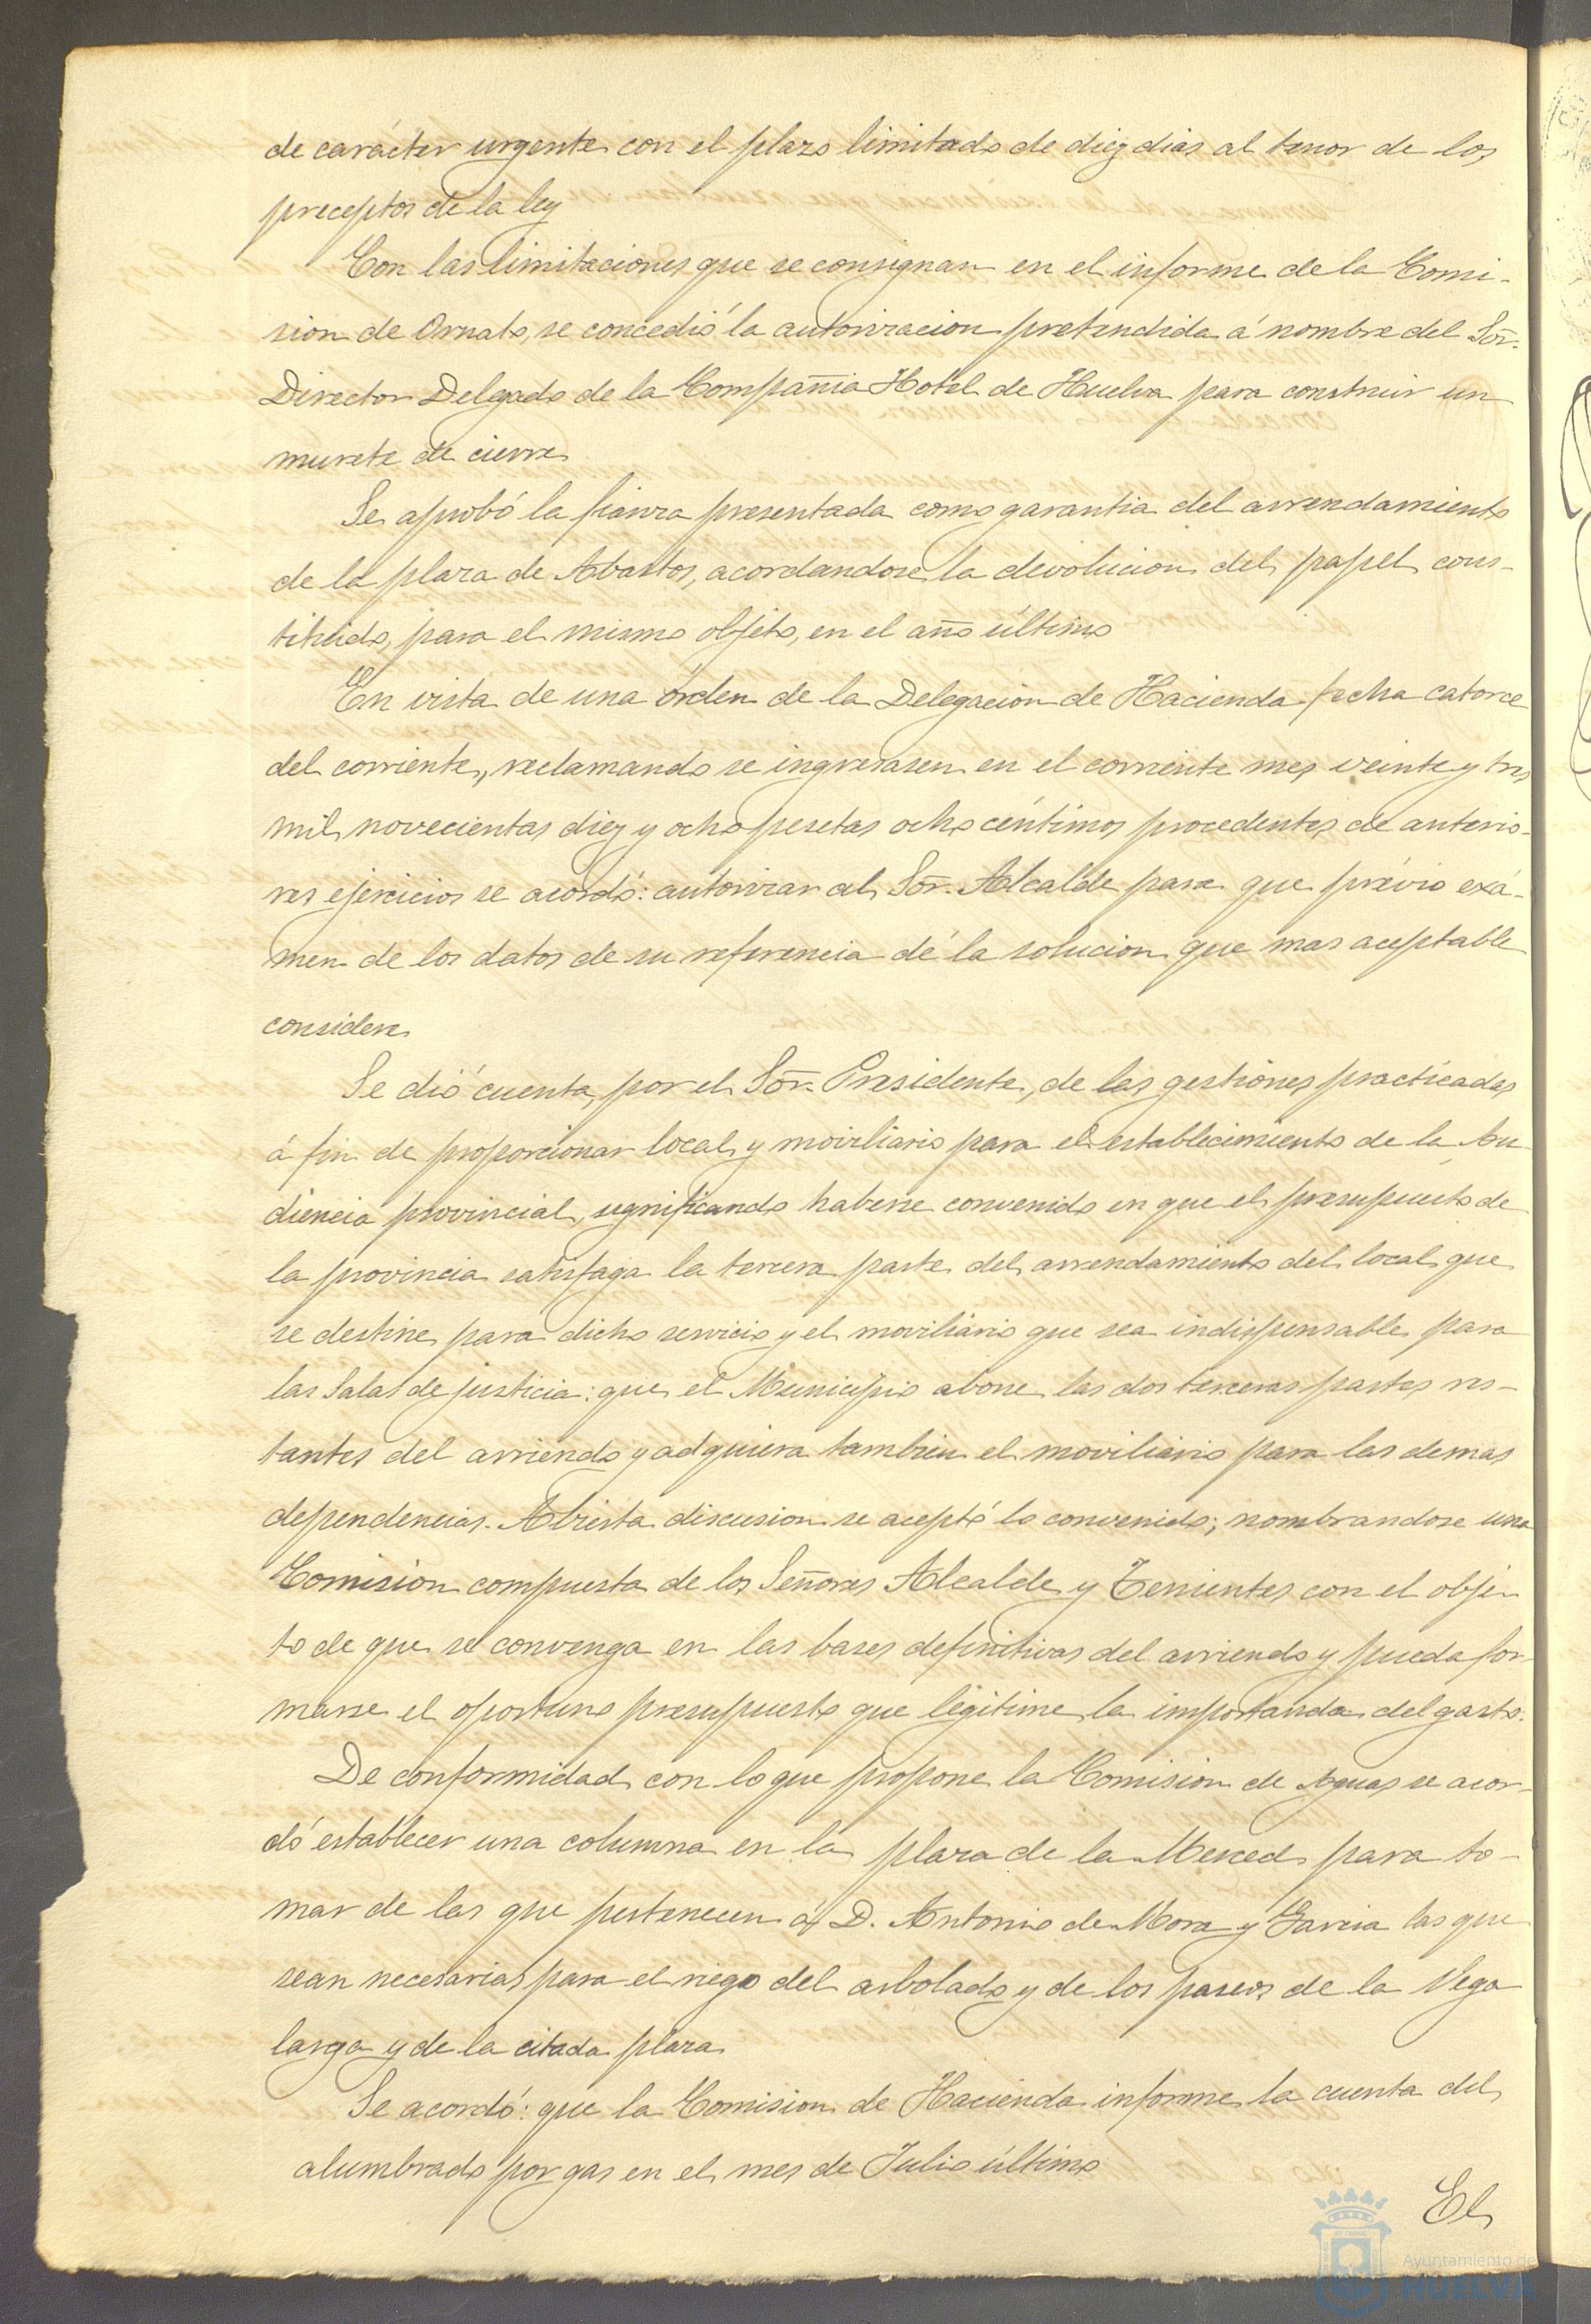 de carácter urgente con el plazo limitado de diez dias al tenor de los
preceptos de la ley
Con las limitaciones que se consignan en el informe de la Comi-
sion de Ornato, se concedió la autorizacion pretendida á nombre del Sor.
Director Delgado de la Compañia Hotel de Huelva para construir un
murete de cierre
Se aprobó la fianza presentada como garantia del arrendamiento
de la plaza de Abastos, acordandose la devolucion del papel cons-
tituido, para el mismo objeto, en el año último
En vista de una órden de la Delegacion de Hacienda fecha catorce
del corriente, reclamando se ingresasen en el corriente mes veinte y tres
mil novecientas diez y ocho pesetas ocho céntimos procedentes de anterio-
res ejercicios se acordó: autorizar al Sor. Alcalde para que prévio exá-
men de los datos de su referencia dé la solucion que mas aceptable
considere
Se dió cuenta, por el Sor. Presidente, de las gestiones practicadas
á fin de proporcionar local y moviliario para el establecimiento de la Au
diencia provincial, significando haberse convenido en que el presupuesto de
la provincia satisfaga la tercera parte del arrendamiento del local que
se destine para dicho servicio y el moviliario que sea indispensable para
las Salas de justicia: que el Municipio abone las dos terceras partes res-
tantes del arriendo y adquiera tambien el moviliario para las demas
dependencias. Abierta discusion se aceptó lo convenido; nombrandose una
Comision compuesta de los Señores Alcalde y Tenientes con el obje-
to de que se convenga en las bases definitivas del arriendo y pueda for-
marse el oportuno presupuesto que legitime la importancia del gasto.
De conformidad con lo que propone la Comision de Aguas se acor-
dó establecer una columna en la plaza de la Merced para to-
mar de las que pertenecen á D. Antonio de Mora y Garcia las que
sean necesarias para el riego del arbolado y de los paseos de la Vega
larga y de la citada plaza
Se acordó: que la Comision de Hacienda informe la cuenta del
alumbrado por gas en el mes de Julio último
El
Ayuntamiento de
HUELVA